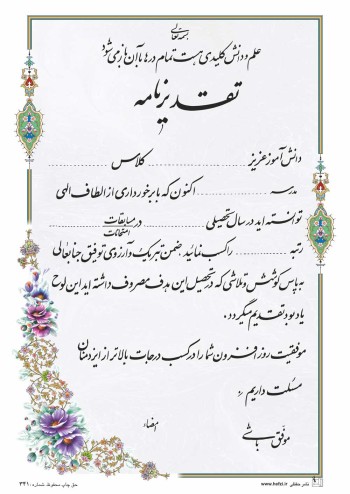 بسمه تعالی
علم و دانش کلیدی هست تمام درها با آن باز می شود
تقدیرنامه
دانش آموز عزیز .......... کلاس ..........
مدرسه .......... اکنون که با برخورداری از الطاف الهی
توانسته اید در سال تحصیلی .......... در مسابقات
امتحانات
رتبه .......... را کسب نمائید ضمن تبریک و آرزوی توفیق جنابعالی
به پاس کوشش و تلاشی که در تحصیل این هدف مصروف داشته اید این لوح
یادبود تقدیم میگردد.
موفقیت روزافزون شما را در کسب درجات بالاتر از ایزد منان
مسئلت داریم
موفق باشی
امضاء
حق چاپ محفوظ. شماره: ۳۳۱۰
ناشر حافظی www.hafzi.ir